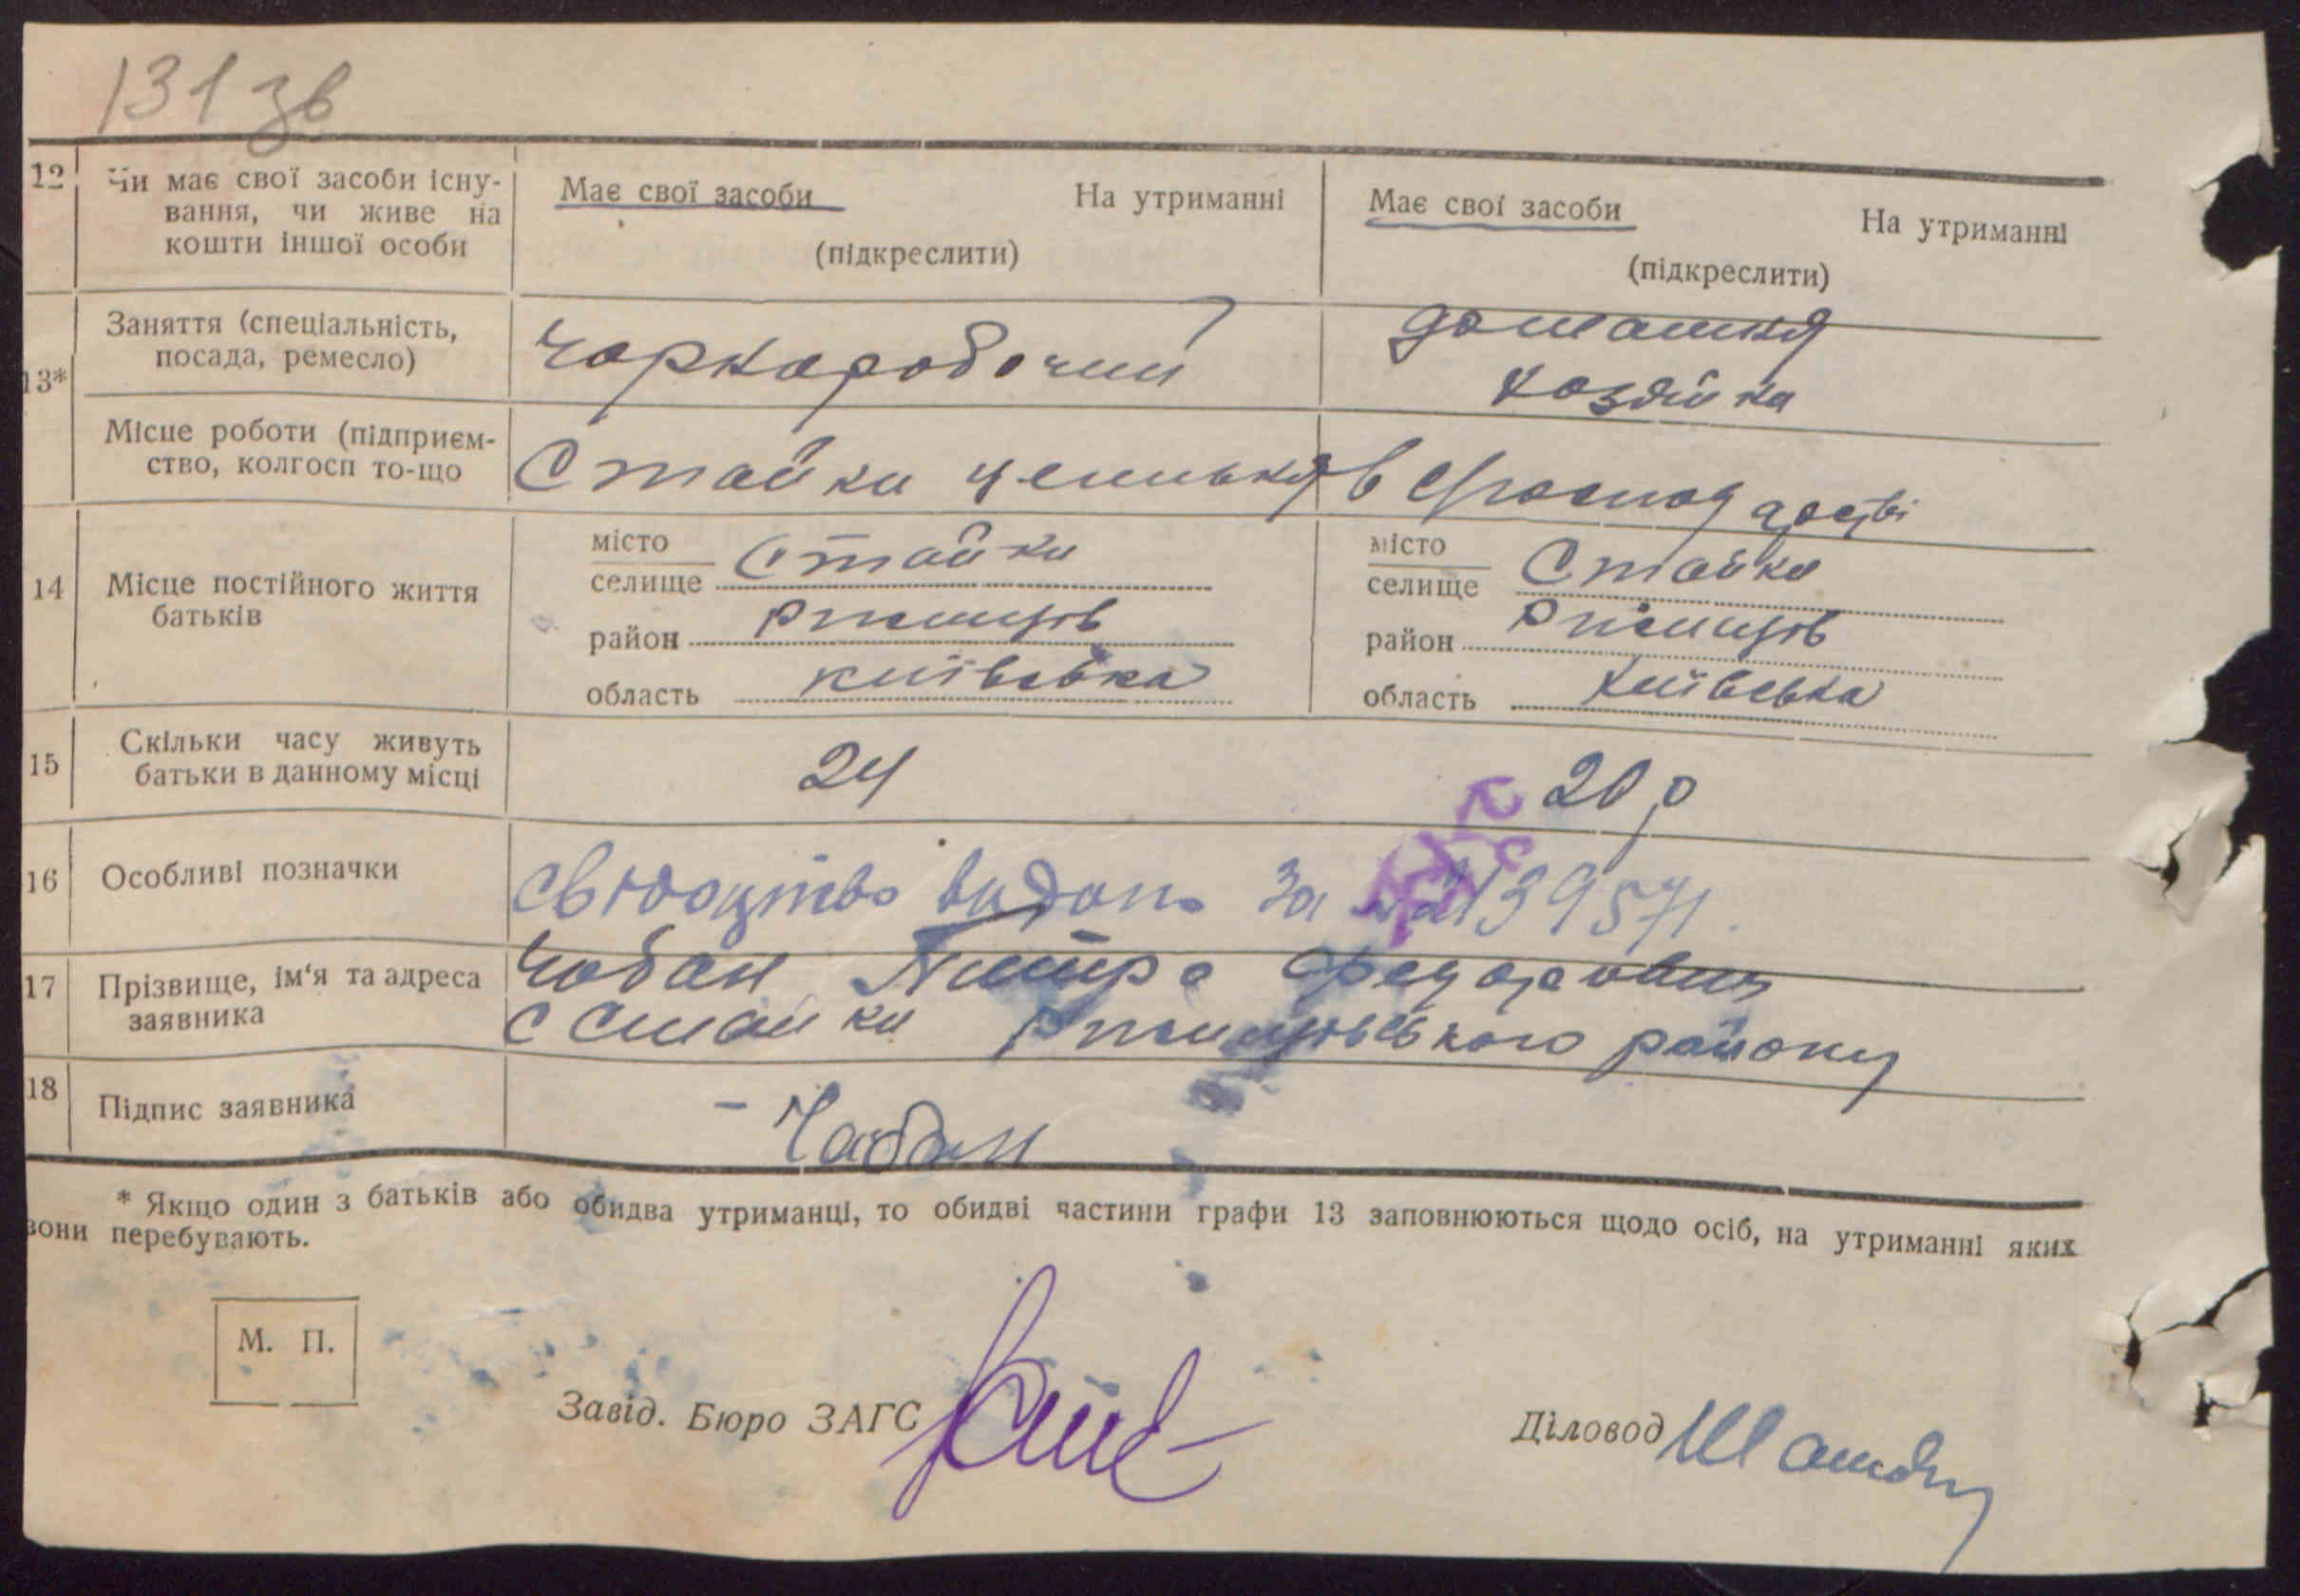 131 зв
12 Чи має свої засоби існу- Має свої засоби На утриманні Має свої засоби На утриманні
вання, чи живе на
кошти іншої особи (підкреслити) (підкреслити)
13* Заняття (спеціальність, Чорноробочий домашня
посада, ремесло) хозяйка
Місце роботи (підприєм- Стайки в господарстві
ство, колгосп то-що
14 Місце постійного життя місто Стайки місто Стайки
батьків селище селище
район Ржищів район Ржищів
область київська область київська
15 Скільки часу живуть 24 20 р
батьки в данному місці
16 Особливі позначки свідоцтво видано за
17 Прізвище, ім'я та адреса Чобан Петро Федорович
заявника с Стайки Ржищівського району
18 Підпис заявника - Чабан
* Якщо один з батьків або обидва утриманці, то обидві частини графи 13 заповнюються щодо осіб, на утриманні яких
вони перебувають.
М. П.
Завід. Бюро ЗАГС Діловод